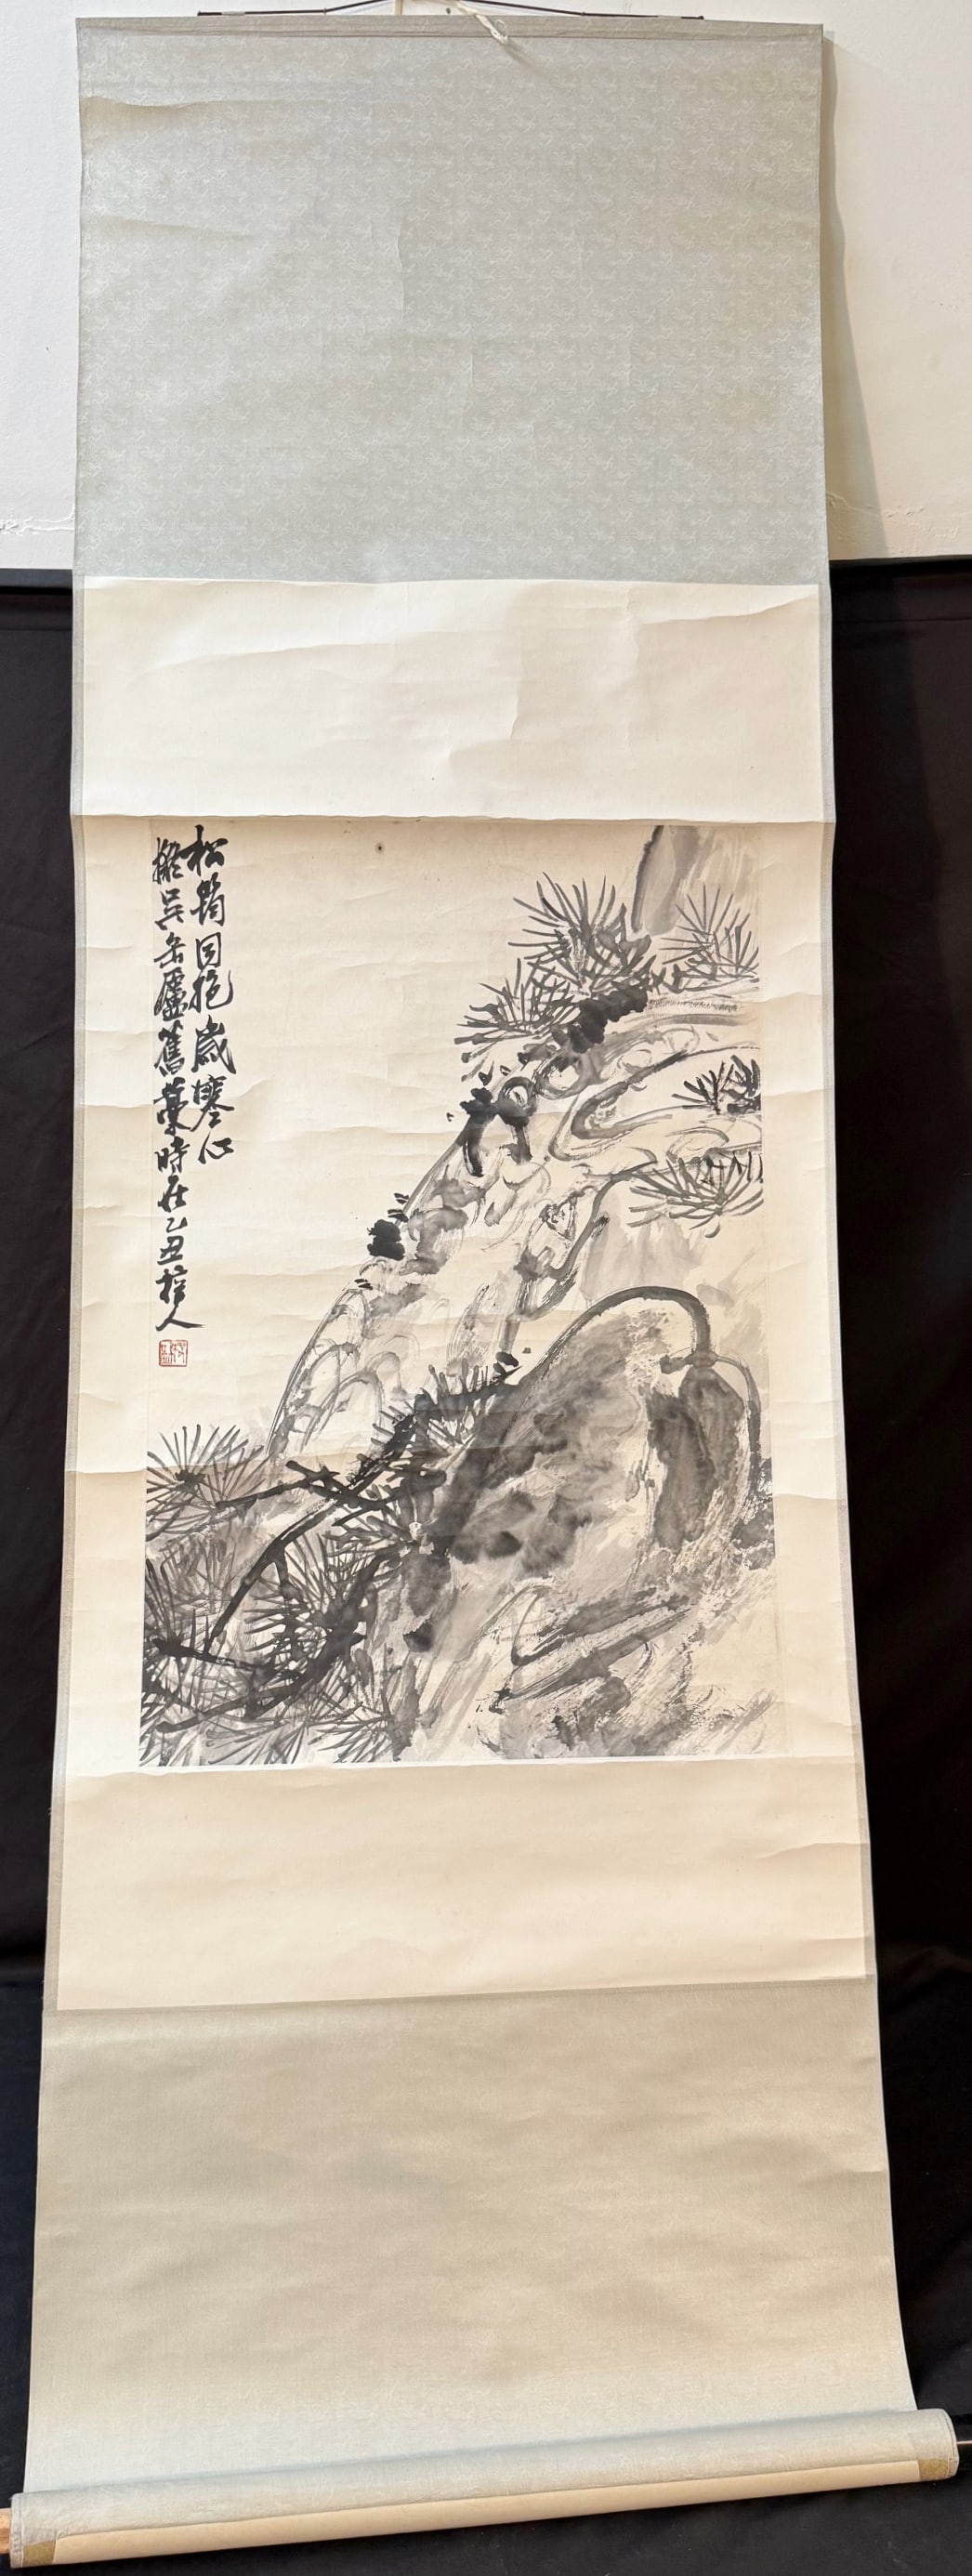 松筠同抱歲寒心
擬吳缶廬舊藁時在乙丑 人